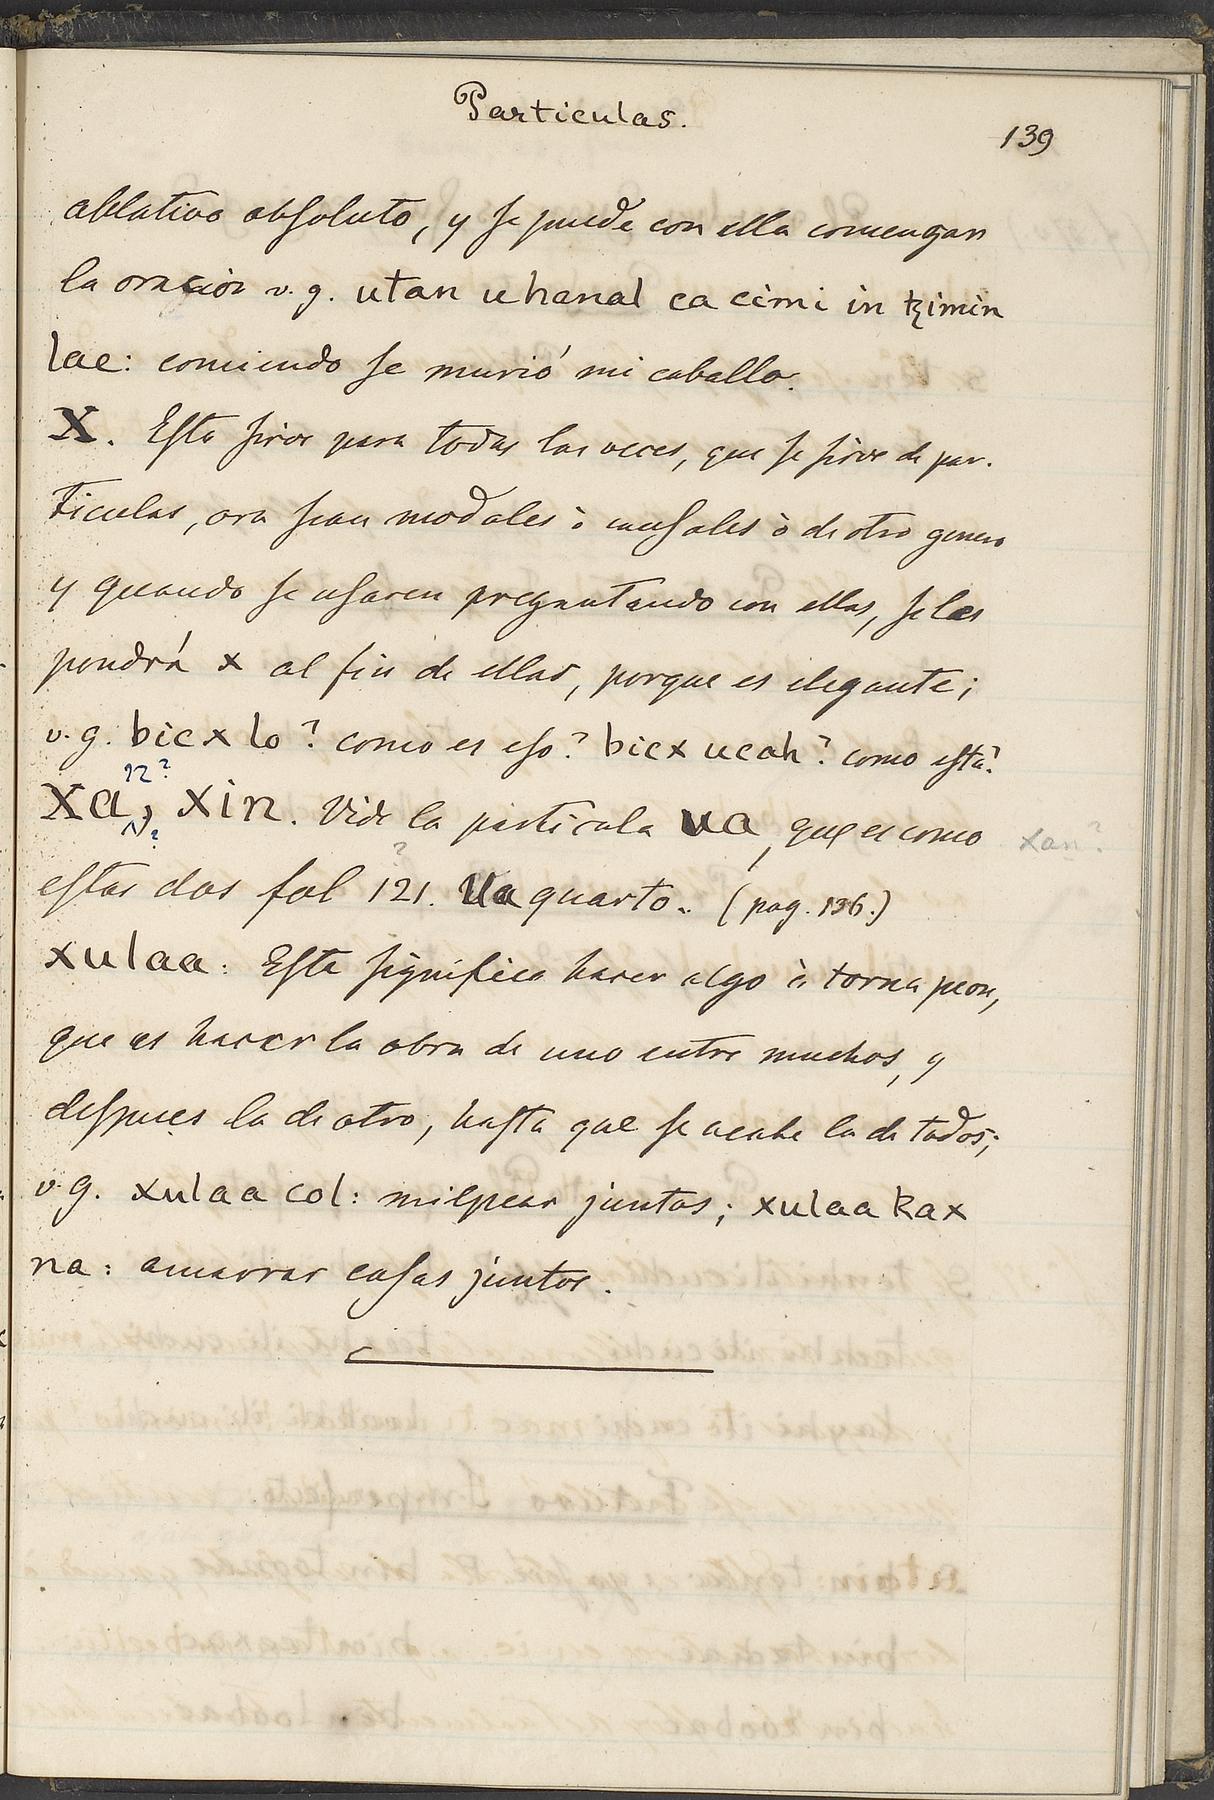 Particulas.
139
ablativo absoluto, y se puede con ella comengar
la oracion v.g. utan uhanal ca cimi in tzimin
lae: comiendo se murió mi caballo.
X. Esta sirve para todas las veces, que se sirve de par-
ticulas, ora sean modales ò causales ò de otro genero
y quando se usaren preguntando con ellas, se les
pondrá x al fin de ellas, porque es elegante;
v.g. bicx lo? como es eso? bicx ucah? como está?
n?
Xa, xin. Vide la particula ua, que es como
?
xan?
estas dos fol 121. Ua quarto. (pag. 136.)
?
xulaa: Esta significa hacer algo à torna peon,
que es hacer la obra de uno entre muchos, y
despues la de otro, hasta que se acabe la de todos;
v.g. xulaa col: milpear juntos; xulaa kax
na: amarrar casas juntos.